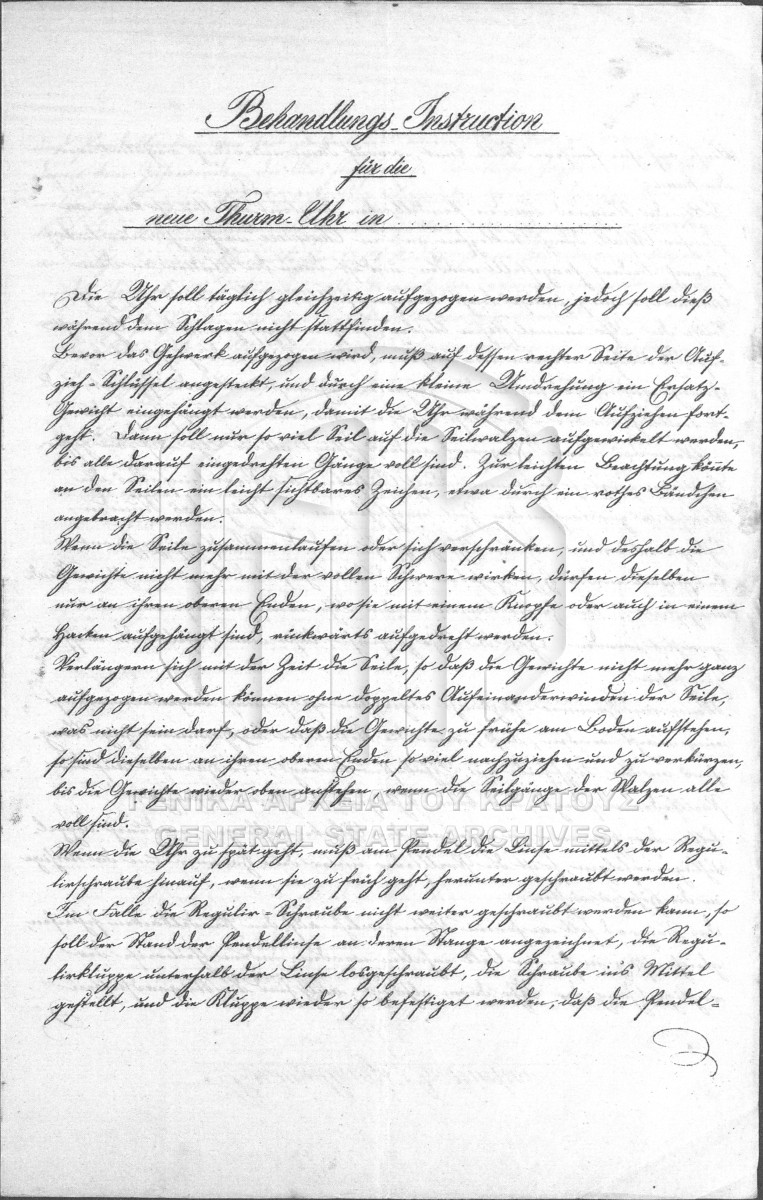 Behandlungs-Instruction
für die
neue Thurm-Uhr in . . . . . . . . . . . . . . . . . . . .
Die Uhr soll täglich gleichzeitig aufgezogen werden, jedoch soll dieß
während dem Schlagen nicht stattfinden.
Bevor das Gehwerk aufgezogen wird, muß auf dessen rechter Seite der Auf-
zieh-Schlüssel angesteckt, und durch eine kleine Umdrehung ein Ersatz-
Gewicht eingehängt werden, damit die Uhr während dem Aufziehen fort-
geht. Dann soll nur so viel Seil auf die Seilwalzen aufgewickelt werden,
bis alle darauf eingedrehten Gänge voll sind. Zur leichten Beachtung könnte
an den Seilen ein leicht sichtbares Zeichen, etwa durch ein rothes Bändchen
angebracht werden.
Wenn die Seile zusammenlaufen oder sich verschränken, und deshalb die
Gewichte nicht mehr mit der vollen Schwere wirken, dürfen dieselben
nur an ihren oberen Enden, wo sie mit einem Knopfe oder auch in einem
Hacken aufgehängt sind, rückwärts aufgedreht werden.
Verlängern sich mit der Zeit die Seile, so daß die Gewichte nicht mehr ganz
aufgezogen werden können ohne doppeltes Aufeinanderwinden der Seile,
was nicht sein darf, oder daß die Gewichte zu frühe am Boden aufstehen,
so sind dieselben an ihren oberen Enden so viel nachzuziehen und zu verkürzen,
bis die Gewichte wieder oben anstehen, wenn die Seilgänge der Walzen alle
voll sind.
ΓΕΝΙΚΑ ΑΡΧΕΙΑ ΤΟΥ ΚΡΑΤΟΥΣ
GENERAL STATE ARCHIVES
Wenn die Uhr zu spät geht, muß am Pendel die Linse mittels der Regu-
lirschraube hinauf, wenn sie zu früh geht, herunter geschraubt werden.
Im Falle die Regulir-Schraube nicht weiter geschraubt werden kann, so
soll der Stand der Pendellinse an deren Stange angezeichnet, die Regu-
lirkluppe unterhalb der Linse losgeschraubt, die Schraube in's Mittel
gestellt, und die Kluppe wieder so befestiget werden, daß die Pendel-